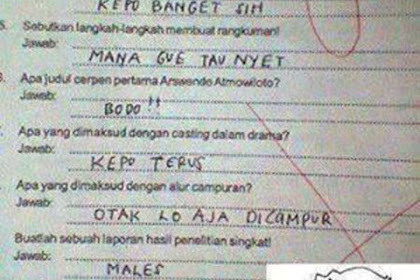 KEPO BANGET SIH
5. Sebutkan langkah-langkah membuat rangkuman!
Jawab:
MANA GUE TAU NYET
Apa judul cerpen pertama Arswendo Atmowiloto?
Jawab:
BODO!!
Apa yang dimaksud dengan casting dalam drama?
Jawab:
KEPO TERUS
Apa yang dimaksud dengan alur campuran?
Jawab:
OTAK LO AJA DICAMPUR
Buatlah sebuah laporan hasil penelitian singkat!
Jawab:
MALES